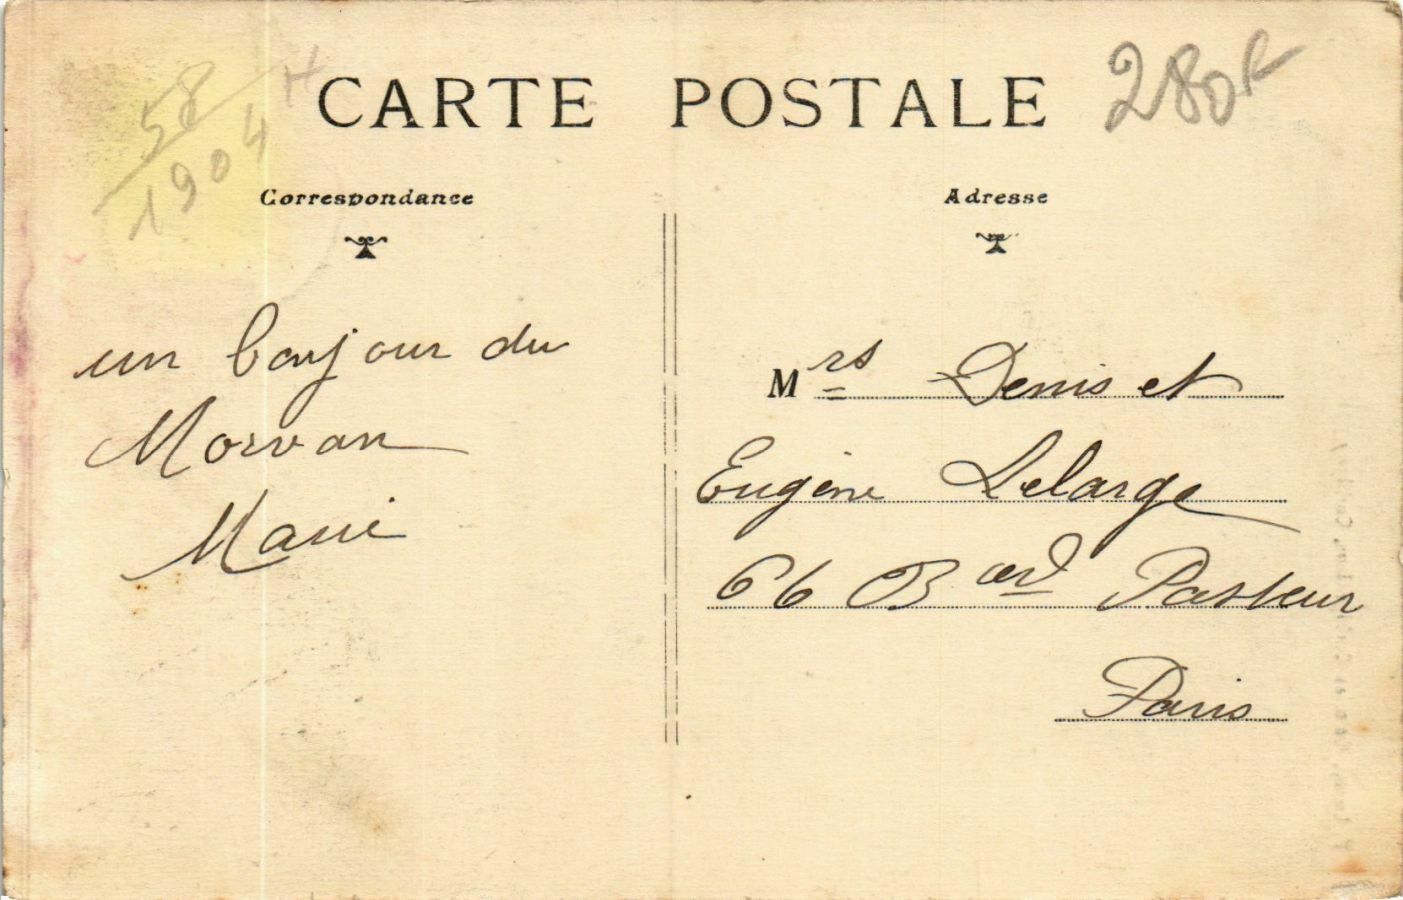 58
1904
H
CARTE POSTALE
280F
Correspondance
Adresse
un bonjour du
Morvan
Marie
Mrs Denis et
Eugène Lelarge
66 Bard Pasteur
Paris